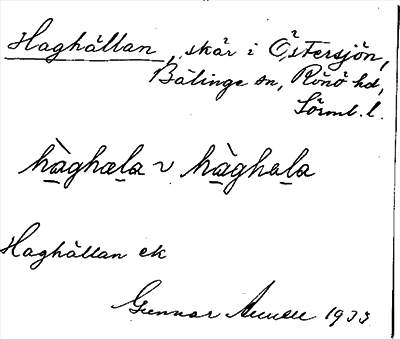 Haghällan, skär i Östersjön,
Bälinge sn, Rönö hd,
Sörml. l.
hàghæla v hàghala
Haghällan ek
Gunnar 1933